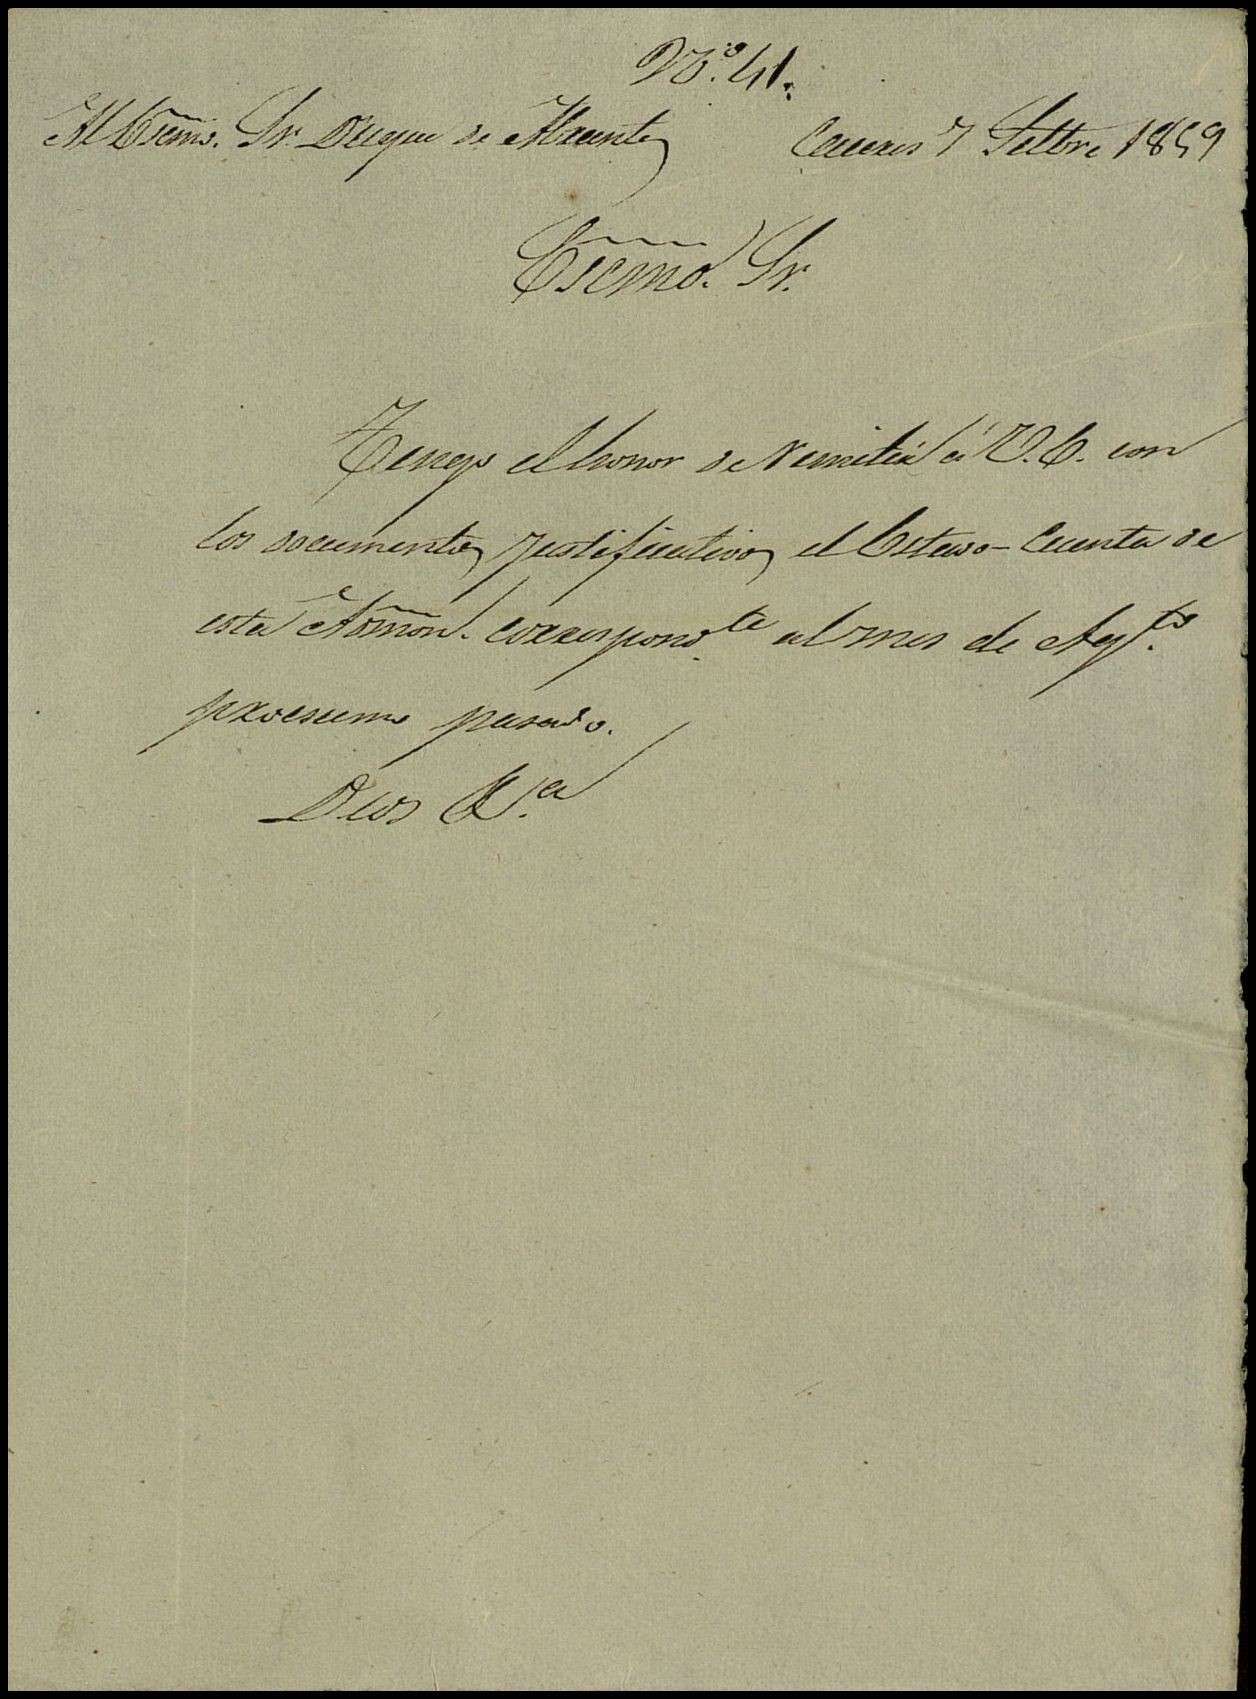 Nº. 41.
Al Escmo. Sr. Duque de Abrantes Caceres 7 Settbre 1859
Escmo. Sr.
Tengo el honor de remitir á V.E. con
los documentos justificativos el Estado-Cuenta de
esta Admon. correspondte al mes de Agto.
procsimo pasado.
Dios &.a